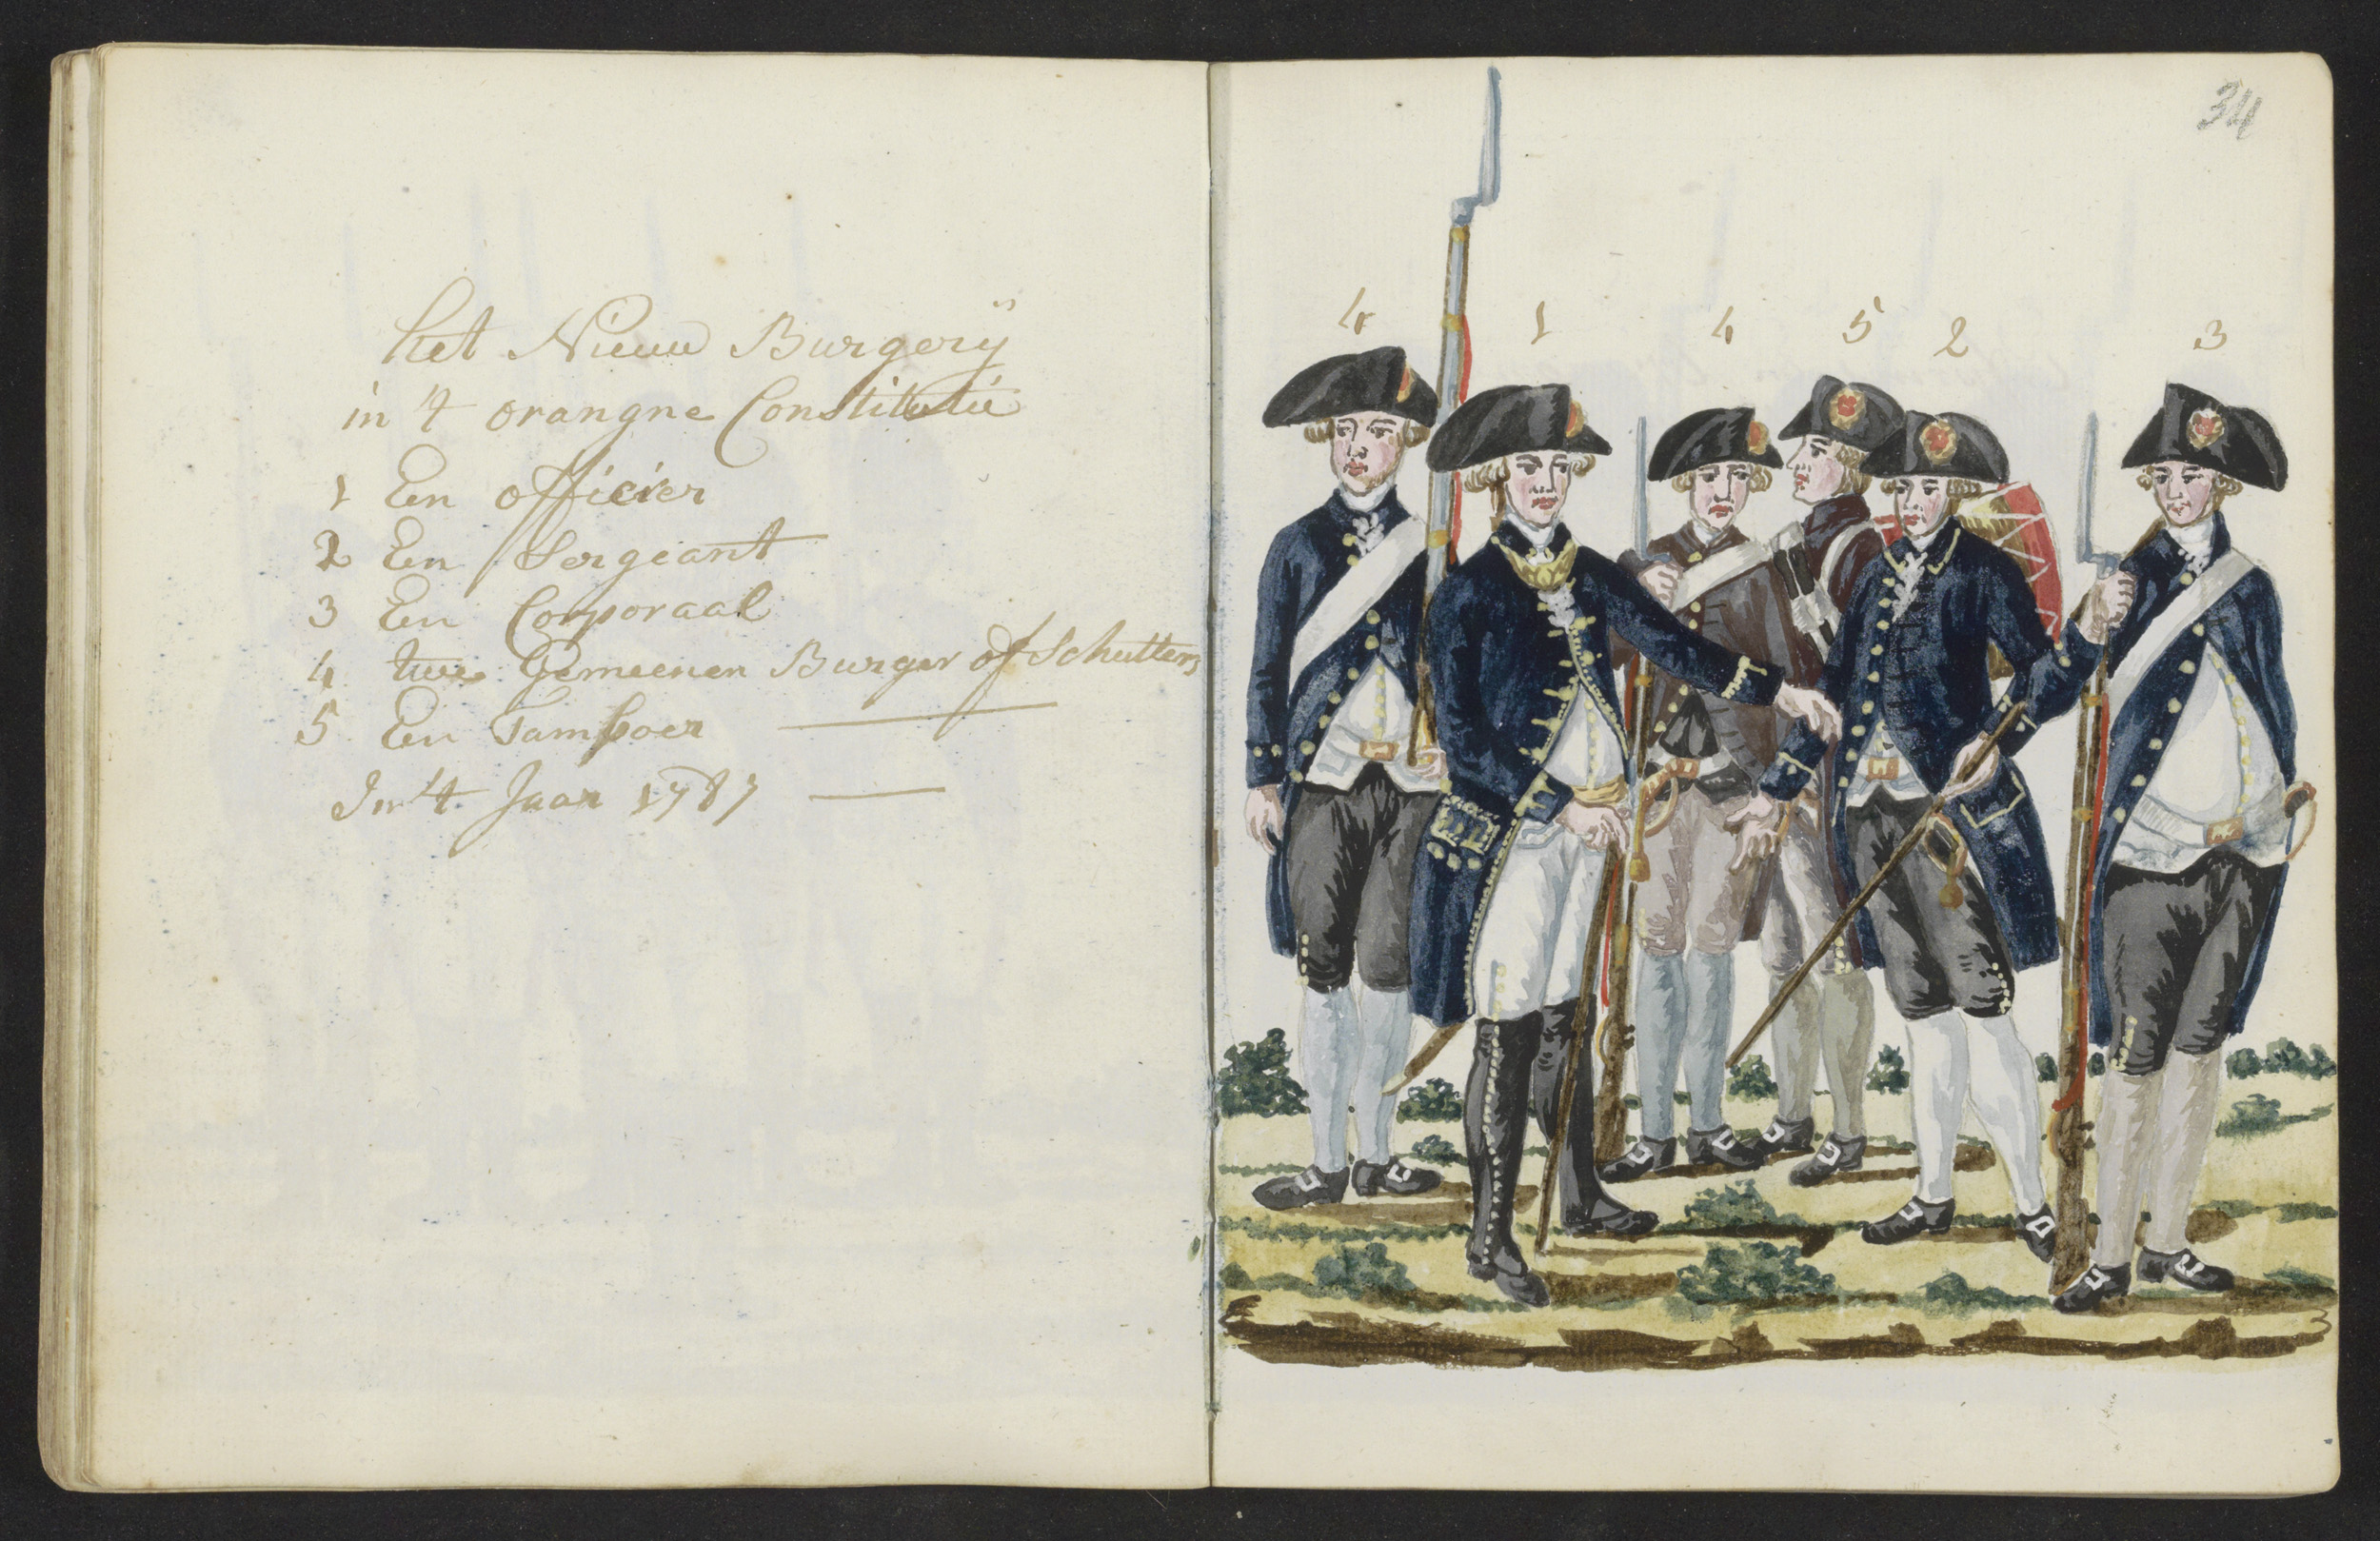 het Nieuw Burgerÿ
in 't orangne Constitutie
1 Een officier
2 Een Sergeant
3 Een Corporaal
4 twe Gemeenen Burger of Schutters
5 Een Tamboer
In 't Jaar 1787
34
4 1 4 5 2 3
3